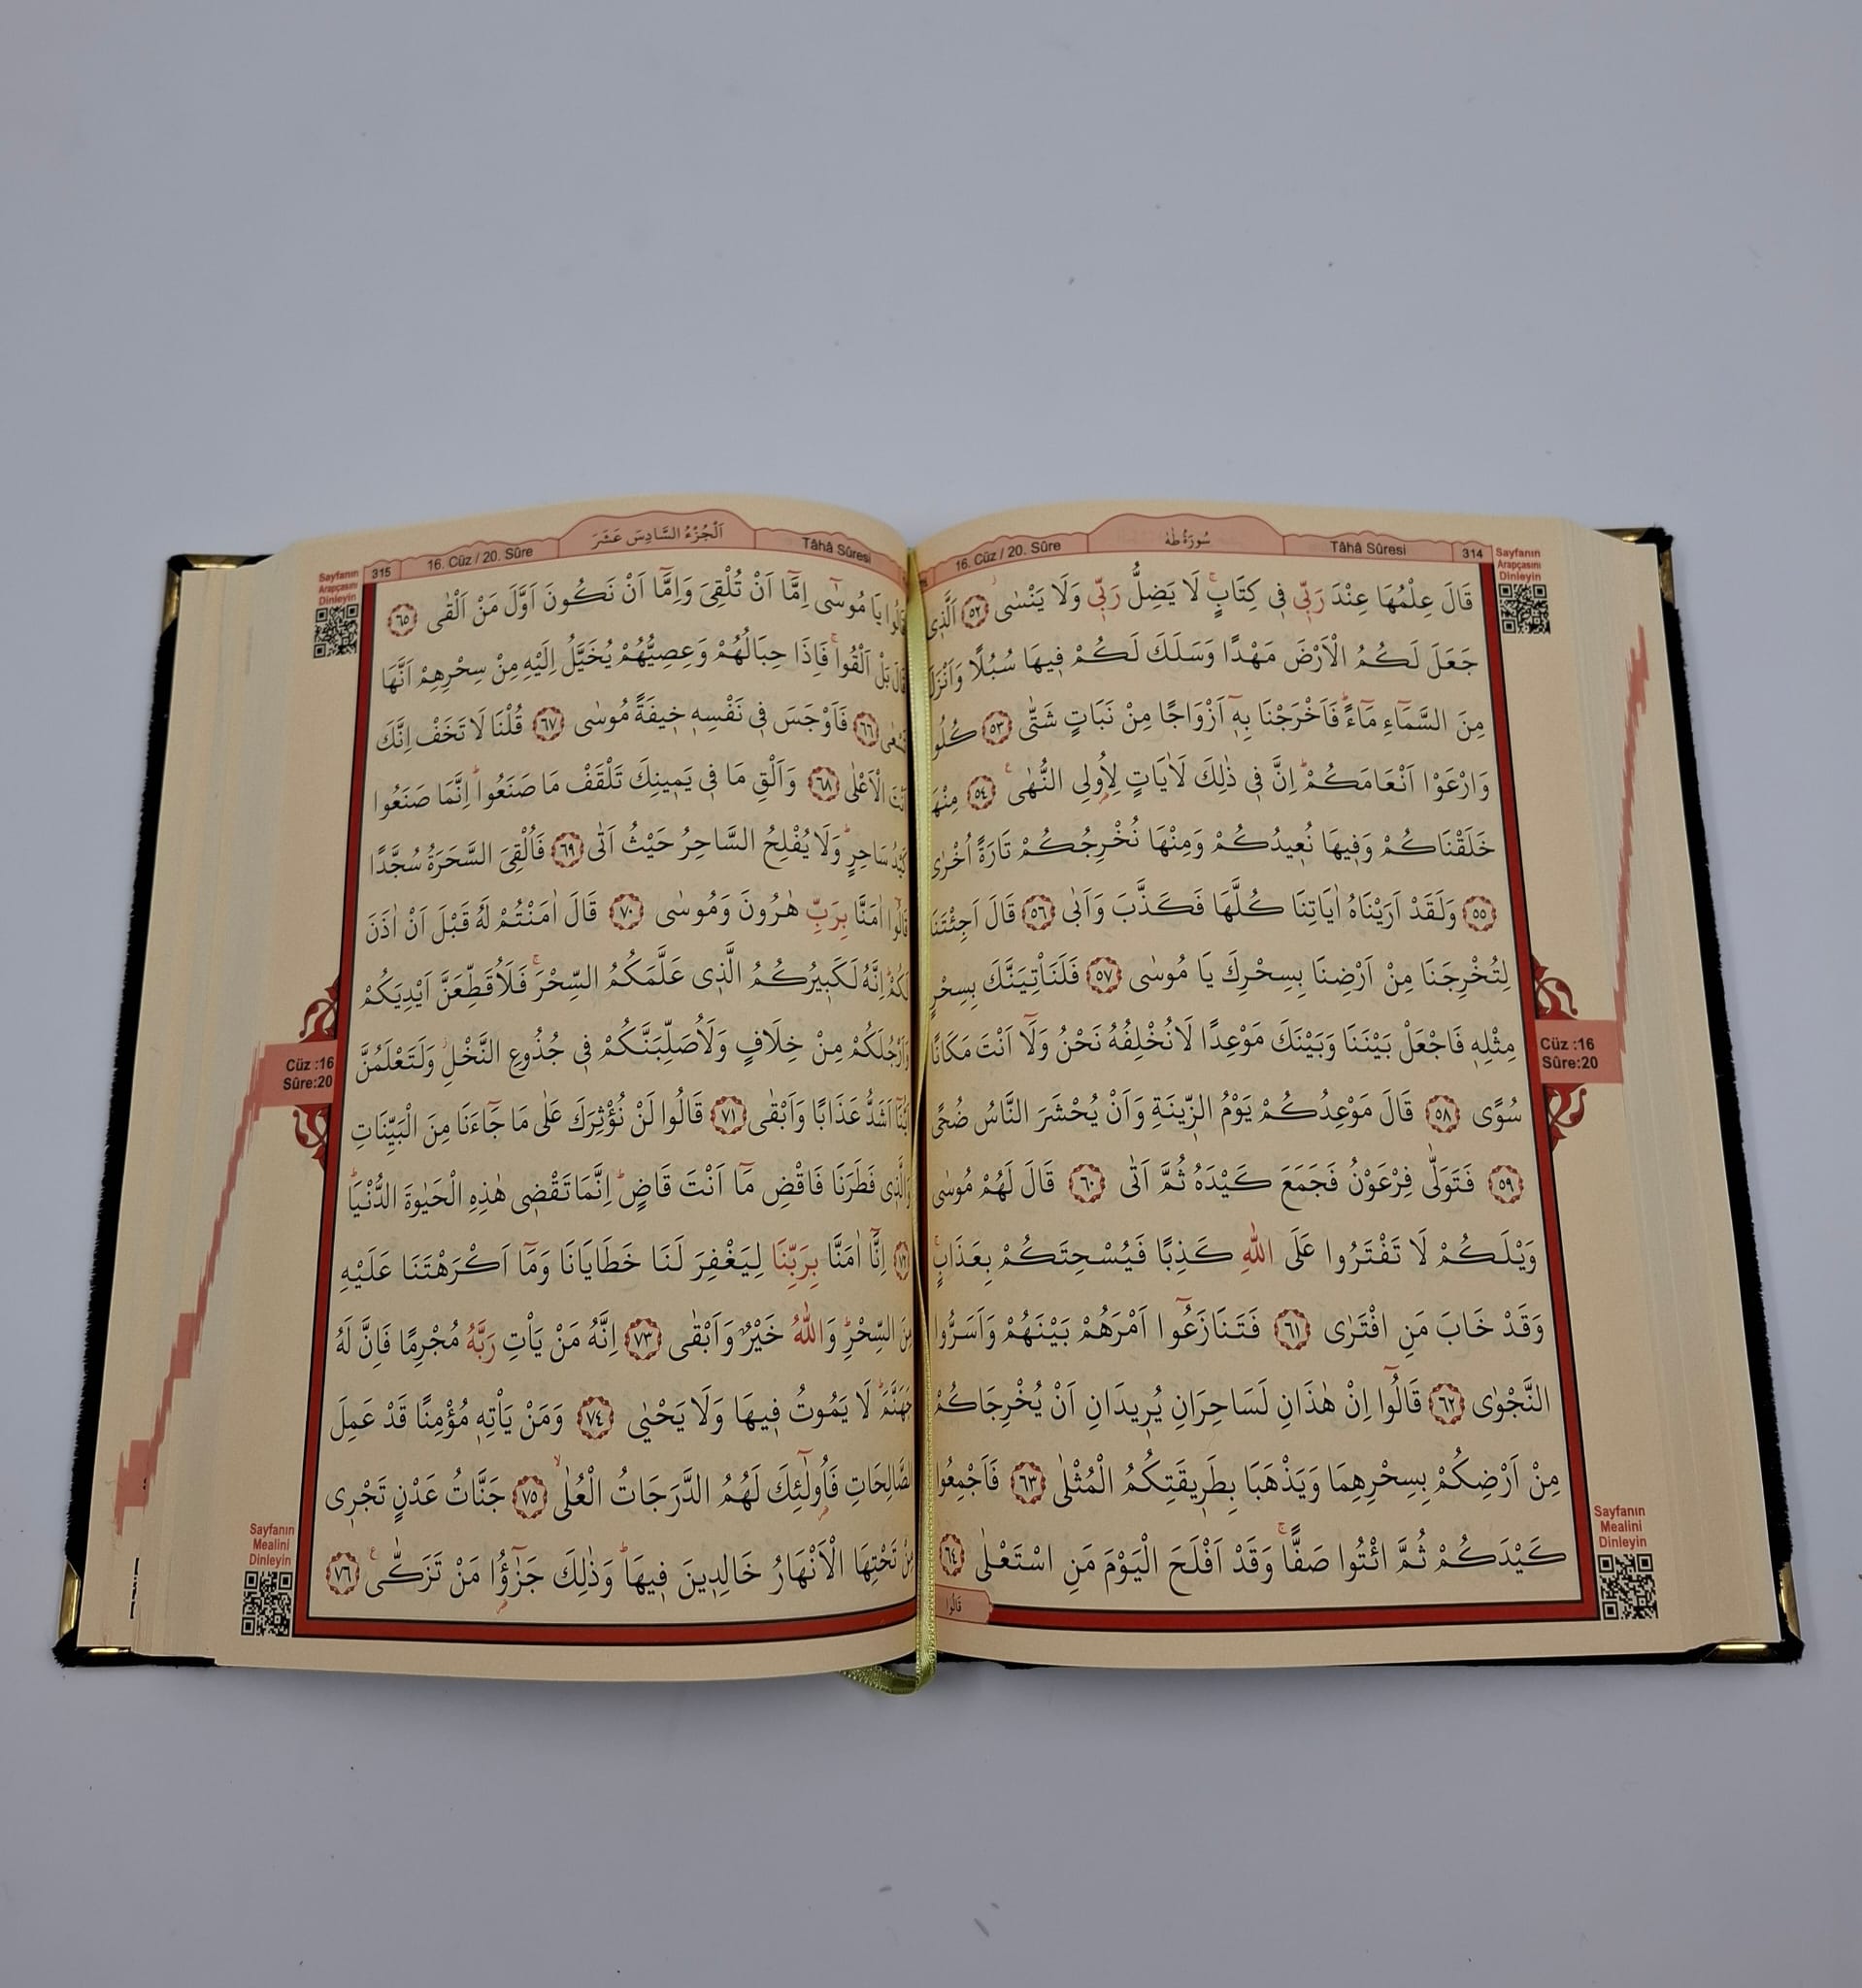 Sayfanın
Arapçasını
Dinleyin
314
Tâhâ Sûresi
سُورَةُ طٰهٰ
16. Cüz / 20. Sûre
قَالَ عِلْمُهَا عِنْدَ رَبّ۪ي ف۪ي كِتَابٍۚ لَا يَضِلُّ رَبّ۪ي وَلَا يَنْسٰىۘ ﴿٥٢﴾ اَلَّذ۪ي
جَعَلَ لَكُمُ الْاَرْضَ مَهْدًا وَسَلَكَ لَكُمْ ف۪يهَا سُبُلًا وَاَنْزَلَ
مِنَ السَّمَٓاءِ مَٓاءًۜ فَاَخْرَجْنَا بِه۪ٓ اَزْوَاجًا مِنْ نَبَاتٍ شَتّٰى ﴿٥٣﴾ كُلُوا
وَارْعَوْا اَنْعَامَكُمْۜ اِنَّ ف۪ي ذٰلِكَ لَاٰيَاتٍ لِاُو۬لِي النُّهٰى۟ ﴿٥٤﴾ مِنْهَا
خَلَقْنَاكُمْ وَف۪يهَا نُع۪يدُكُمْ وَمِنْهَا نُخْرِجُكُمْ تَارَةً اُخْرٰى
﴿٥٥﴾ وَلَقَدْ اَرَيْنَاهُ اٰيَاتِنَا كُلَّهَا فَكَذَّبَ وَاَبٰى ﴿٥٦﴾ قَالَ اَجِئْتَنَا
لِتُخْرِجَنَا مِنْ اَرْضِنَا بِسِحْرِكَ يَا مُوسٰى ﴿٥٧﴾ فَلَنَأْتِيَنَّكَ بِسِحْرٍ
مِثْلِه۪ فَاجْعَلْ بَيْنَنَا وَبَيْنَكَ مَوْعِدًا لَا نُخْلِفُهُ نَحْنُ وَلَٓا اَنْتَ مَكَانًا
سُوًى ﴿٥٨﴾ قَالَ مَوْعِدُكُمْ يَوْمُ الزّ۪ينَةِ وَاَنْ يُحْشَرَ النَّاسُ ضُحًى
﴿٥٩﴾ فَتَوَلّٰى فِرْعَوْنُ فَجَمَعَ كَيْدَهُ ثُمَّ اَتٰى ﴿٦٠﴾ قَالَ لَهُمْ مُوسٰى
وَيْلَكُمْ لَا تَفْتَرُوا عَلَى اللّٰهِ كَذِبًا فَيُسْحِتَكُمْ بِعَذَابٍۚ
وَقَدْ خَابَ مَنِ افْتَرٰى ﴿٦١﴾ فَتَنَازَعُٓوا اَمْرَهُمْ بَيْنَهُمْ وَاَسَرُّوا
النَّجْوٰى ﴿٦٢﴾ قَالُٓوا اِنْ هٰذَانِ لَسَاحِرَانِ يُر۪يدَانِ اَنْ يُخْرِجَاكُمْ
مِنْ اَرْضِكُمْ بِسِحْرِهِمَا وَيَذْهَبَا بِطَر۪يقَتِكُمُ الْمُثْلٰى ﴿٦٣﴾ فَاَجْمِعُوا
كَيْدَكُمْ ثُمَّ ائْتُوا صَفًّاۚ وَقَدْ اَفْلَحَ الْيَوْمَ مَنِ اسْتَعْلٰى ﴿٦٤﴾
قَالُوا
Cüz :16
Sûre:20
Sayfanın
Mealini
Dinleyin
Tâhâ Sûresi
اَلْجُزْءُ السَّادِسَ عَشَرَ
16. Cüz / 20. Sûre
315
Sayfanın
Arapçasını
Dinleyin
قَالُوا يَا مُوسٰٓى اِمَّٓا اَنْ تُلْقِيَ وَاِمَّٓا اَنْ نَكُونَ اَوَّلَ مَنْ اَلْقٰى ﴿٦٥﴾
قَالَ بَلْ اَلْقُواۚ فَاِذَا حِبَالُهُمْ وَعِصِيُّهُمْ يُخَيَّلُ اِلَيْهِ مِنْ سِحْرِهِمْ اَنَّهَا
تَسْعٰى ﴿٦٦﴾ فَاَوْجَسَ ف۪ي نَفْسِه۪ خ۪يفَةً مُوسٰى ﴿٦٧﴾ قُلْنَا لَا تَخَفْ اِنَّكَ
اَنْتَ الْاَعْلٰى ﴿٦٨﴾ وَاَلْقِ مَا ف۪ي يَم۪ينِكَ تَلْقَفْ مَا صَنَعُواۜ اِنَّمَا صَنَعُوا
كَيْدُ سَاحِرٍۜ وَلَا يُفْلِحُ السَّاحِرُ حَيْثُ اَتٰى ﴿٦٩﴾ فَاُلْقِيَ السَّحَرَةُ سُجَّدًا
قَالُٓوا اٰمَنَّا بِرَبِّ هٰرُونَ وَمُوسٰى ﴿٧٠﴾ قَالَ اٰمَنْتُمْ لَهُ قَبْلَ اَنْ اٰذَنَ
لَكُمْۜ اِنَّهُ لَكَب۪يرُكُمُ الَّذ۪ي عَلَّمَكُمُ السِّحْرَۚ فَلَاُقَطِّعَنَّ اَيْدِيَكُمْ
وَاَرْجُلَكُمْ مِنْ خِلَافٍ وَلَاُصَلِّبَنَّكُمْ ف۪ي جُذُوعِ النَّخْلِۘ وَلَتَعْلَمُنَّ
اَيُّنَٓا اَشَدُّ عَذَابًا وَاَبْقٰى ﴿٧١﴾ قَالُوا لَنْ نُؤْثِرَكَ عَلٰى مَا جَٓاءَنَا مِنَ الْبَيِّنَاتِ
وَالَّذ۪ي فَطَرَنَا فَاقْضِ مَٓا اَنْتَ قَاضٍۜ اِنَّمَا تَقْض۪ي هٰذِهِ الْحَيٰوةَ الدُّنْيَاۜ
﴿٧٢﴾ اِنَّٓا اٰمَنَّا بِرَبِّنَا لِيَغْفِرَ لَنَا خَطَايَانَا وَمَٓا اَكْرَهْتَنَا عَلَيْهِ
مِنَ السِّحْرِۜ وَاللّٰهُ خَيْرٌ وَاَبْقٰى ﴿٧٣﴾ اِنَّهُ مَنْ يَأْتِ رَبَّهُ مُجْرِمًا فَاِنَّ لَهُ
جَهَنَّمَۜ لَا يَمُوتُ ف۪يهَا وَلَا يَحْيٰى ﴿٧٤﴾ وَمَنْ يَأْتِه۪ مُؤْمِنًا قَدْ عَمِلَ
الصَّالِحَاتِ فَاُو۬لٰٓئِكَ لَهُمُ الدَّرَجَاتُ الْعُلٰىۙ ﴿٧٥﴾ جَنَّاتُ عَدْنٍ تَجْر۪ي
مِنْ تَحْتِهَا الْاَنْهَارُ خَالِد۪ينَ ف۪يهَاۜ وَذٰلِكَ جَزٰٓؤُ۬ا مَنْ تَزَكّٰى۟ ﴿٧٦﴾
Cüz :16
Sûre:20
Sayfanın
Mealini
Dinleyin